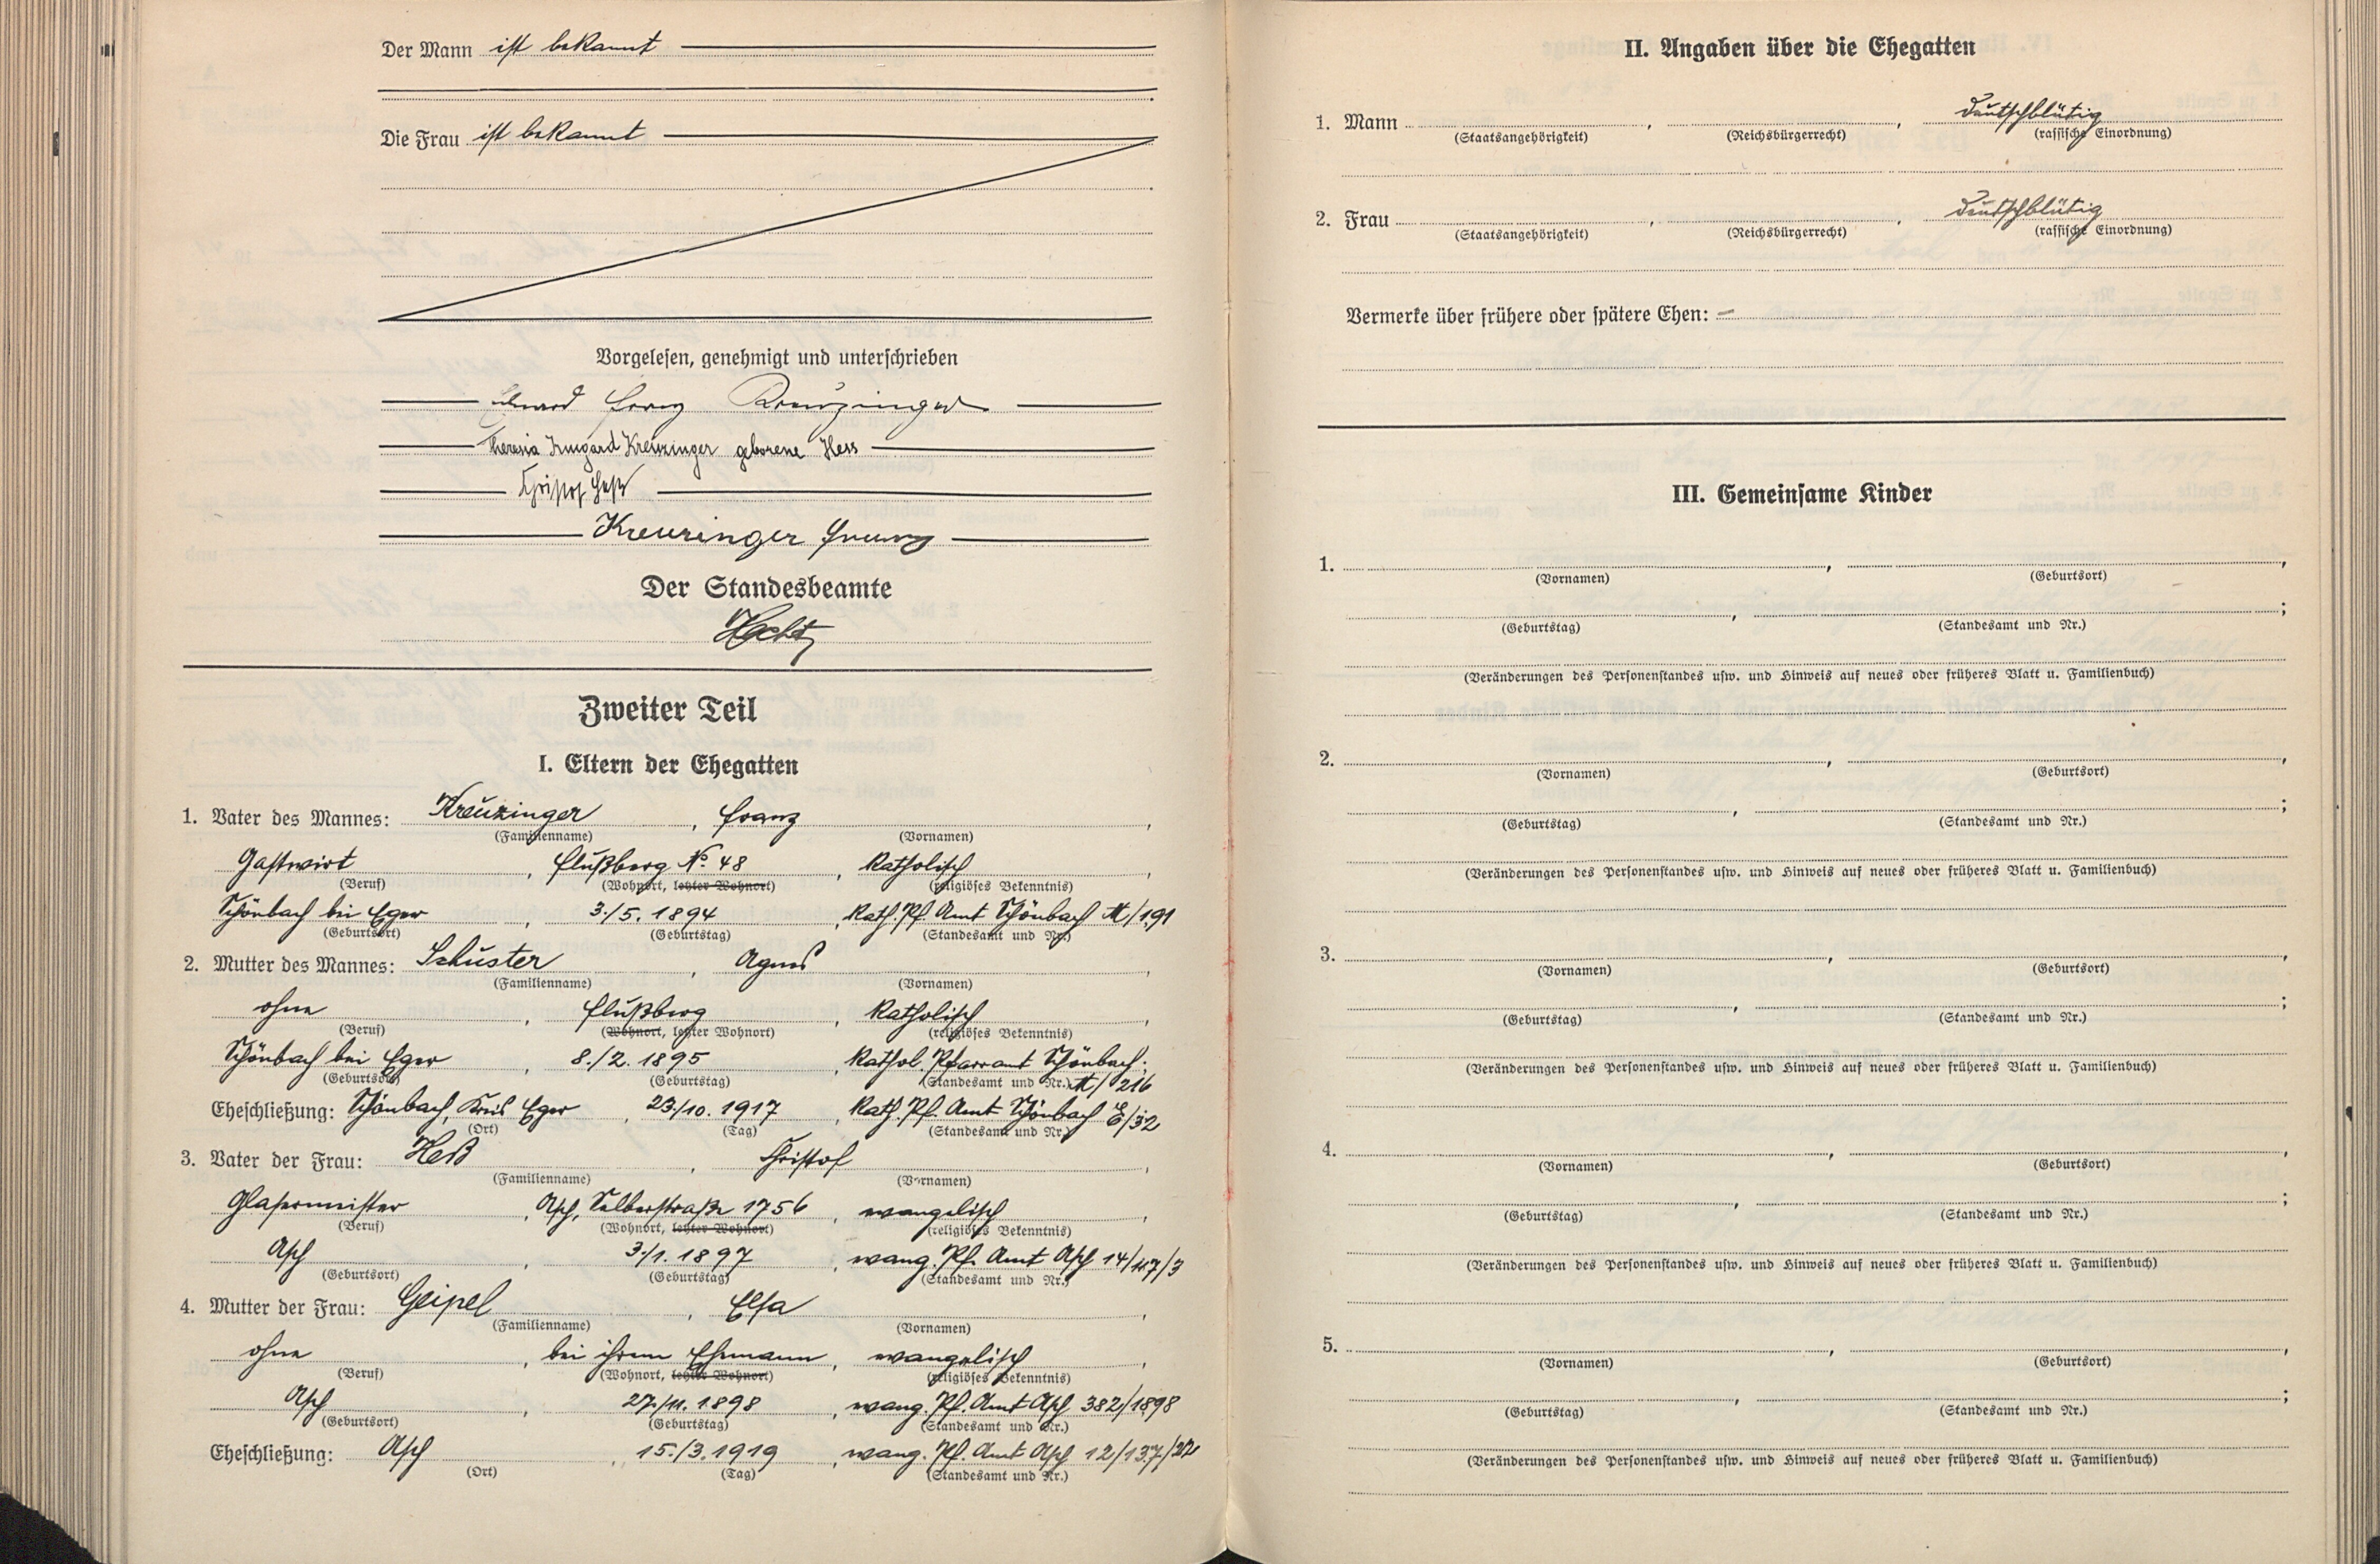 Der Mann ist bekannt
Die Frau ist bekannt
Vorgelesen, genehmigt und unterschrieben
Eduard Franz Kreuzinger
Theresia Irmgard Kreuzinger geborene Hess
Christof Heß
Kreuzinger Franz
Der Standesbeamte
Zweiter Teil
I. Eltern der Ehegatten
1. Vater des Mannes: Kreuzinger, Franz,
(Familienname) (Vornamen)
Gastwirt, Flußberg No. 48, katholisch,
(Beruf) (Wohnort, letzter Wohnort) (religiöses Bekenntnis)
Schönbach bei Eger, 3./5. 1894, Kath. Pf. Amt Schönbach M/191
(Geburtsort) (Geburtstag) (Standesamt und Nr.)
2. Mutter des Mannes: Schuster, Agnes,
(Familienname) (Vornamen)
ohne, Flußberg, katholisch,
(Beruf) (Wohnort, letzter Wohnort) (religiöses Bekenntnis)
Schönbach bei Eger, 8./2. 1895, Kathol. Pfarramt Schönbach;
(Geburtsort) (Geburtstag) (Standesamt und Nr.) M/216
Eheschließung: Schönbach, Kreis Eger, 23./10. 1917, Kath. Pf. Amt Schönbach E/32
(Ort) (Tag) (Standesamt und Nr.)
3. Vater der Frau: Heß, Christof,
(Familienname) (Vornamen)
Glasermeister, Asch, Selberstraße 1756, evangelisch,
(Beruf) (Wohnort, letzter Wohnort) (religiöses Bekenntnis)
Asch, 3./1. 1897, evang. Pf. Amt Asch 14/117/3
(Geburtsort) (Geburtstag) (Standesamt und Nr.)
4. Mutter der Frau: Geipel, Elsa,
(Familienname) (Vornamen)
ohne, bei ihrem Ehemann, evangelisch,
(Beruf) (Wohnort, letzter Wohnort) (religiöses Bekenntnis)
Asch, 27./11. 1898, evang. Pf. Amt Asch 382/1898
(Geburtsort) (Geburtstag) (Standesamt und Nr.)
Eheschließung: Asch, 15./3. 1919, evang. Pf. Amt Asch 12/137/22
(Ort) (Tag) (Standesamt und Nr.)
II. Angaben über die Ehegatten
1. Mann , , deutschblütig
(Staatsangehörigkeit) (Reichsbürgerrecht) (rassische Einordnung)
2. Frau , , deutschblütig
(Staatsangehörigkeit) (Reichsbürgerrecht) (rassische Einordnung)
Vermerke über frühere oder spätere Ehen: –
III. Gemeinsame Kinder
1. , ,
(Vornamen) (Geburtsort)
, ;
(Geburtstag) (Standesamt und Nr.)
(Veränderungen des Personenstandes usw. und Hinweis auf neues oder früheres Blatt u. Familienbuch)
2. , ,
(Vornamen) (Geburtsort)
, ;
(Geburtstag) (Standesamt und Nr.)
(Veränderungen des Personenstandes usw. und Hinweis auf neues oder früheres Blatt u. Familienbuch)
3. , ,
(Vornamen) (Geburtsort)
, ;
(Geburtstag) (Standesamt und Nr.)
(Veränderungen des Personenstandes usw. und Hinweis auf neues oder früheres Blatt u. Familienbuch)
4. , ,
(Vornamen) (Geburtsort)
, ;
(Geburtstag) (Standesamt und Nr.)
(Veränderungen des Personenstandes usw. und Hinweis auf neues oder früheres Blatt u. Familienbuch)
5. , ,
(Vornamen) (Geburtsort)
, ;
(Geburtstag) (Standesamt und Nr.)
(Veränderungen des Personenstandes usw. und Hinweis auf neues oder früheres Blatt u. Familienbuch)